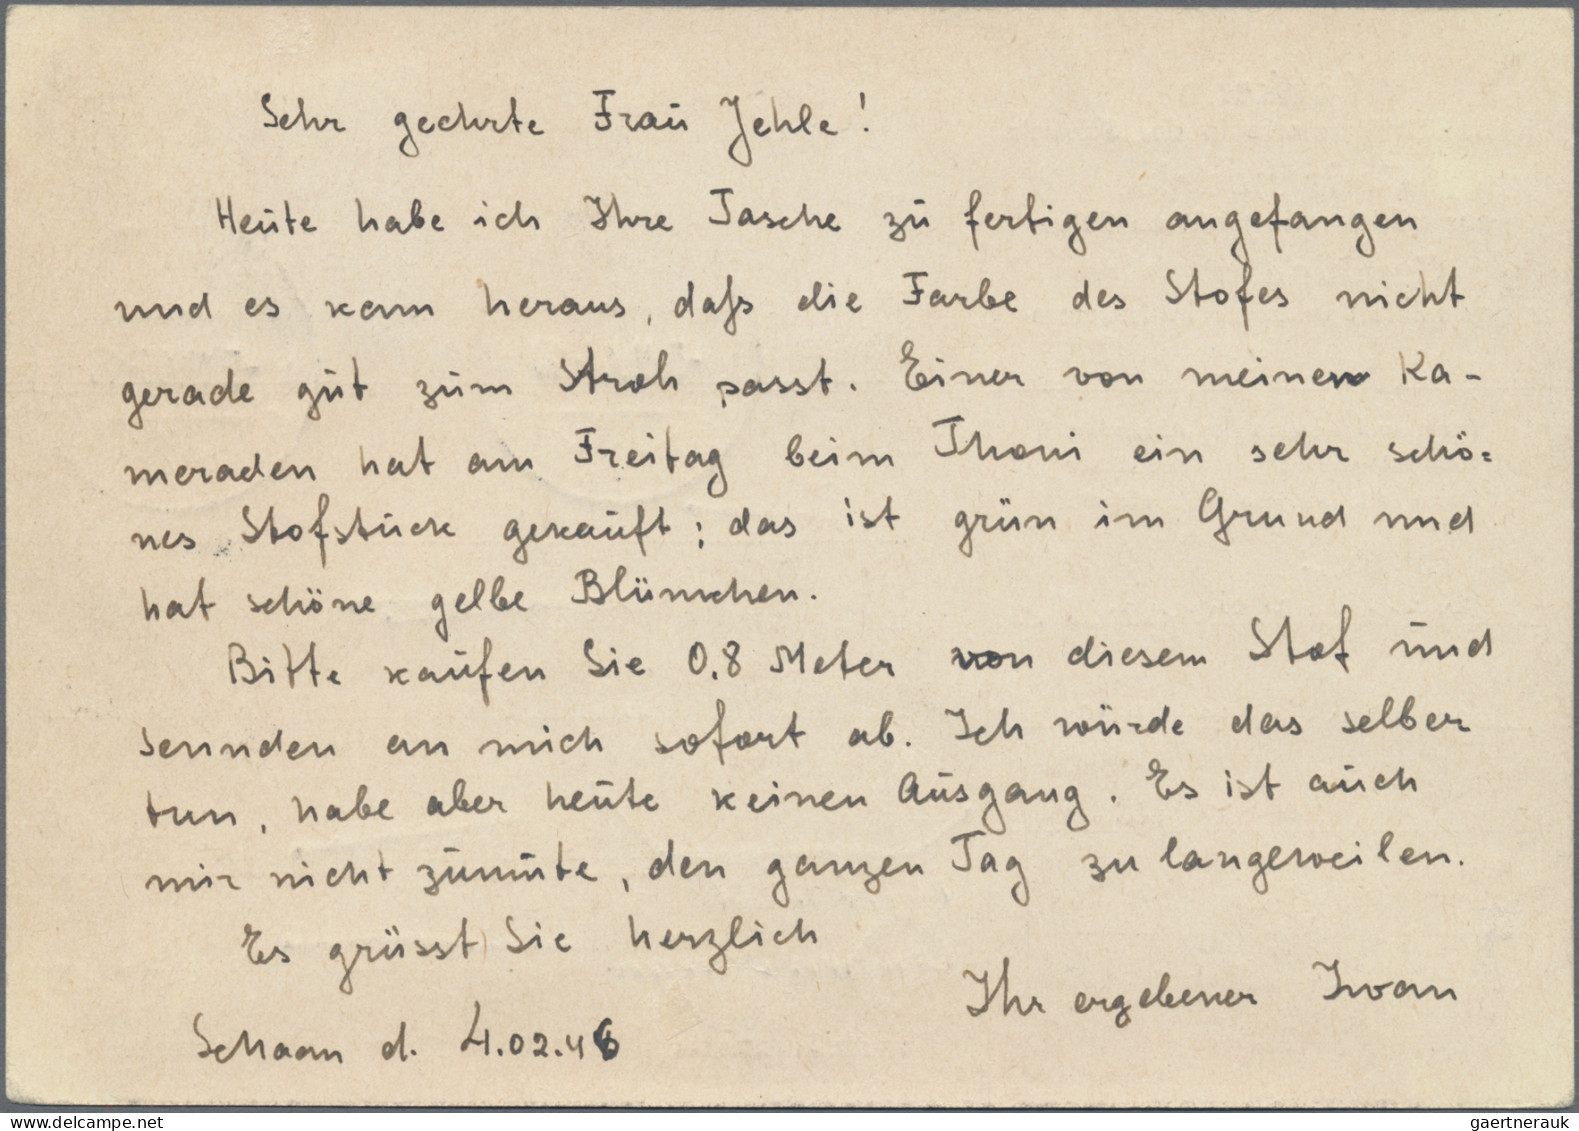 Sehr geehrte Frau Jehle!
Heute habe ich Ihre Tasche zu fertigen angefangen
und es kam heraus, daß die Farbe des Stofes nicht
gerade gut zum Stroh passt. Einer von meinen Ka-
meraden hat am Freitag beim Thoni ein sehr schö-
nes Stofstück gekauft; das ist grün im Grund und
hat schöne gelbe Blümchen.
Bitte kaufen Sie 0.8 Meter von diesem Stof und
sennden an mich sofort ab. Ich würde das selber
tun, habe aber heute keinen Ausgang. Es ist auch
mir nicht zumute, den ganzen Tag zu langeweilen.
Es grüsst Sie herzlich
Ihr ergebener Iwan
Schaan d. 4.02.46
HipPostcard.com
gaertnerauk